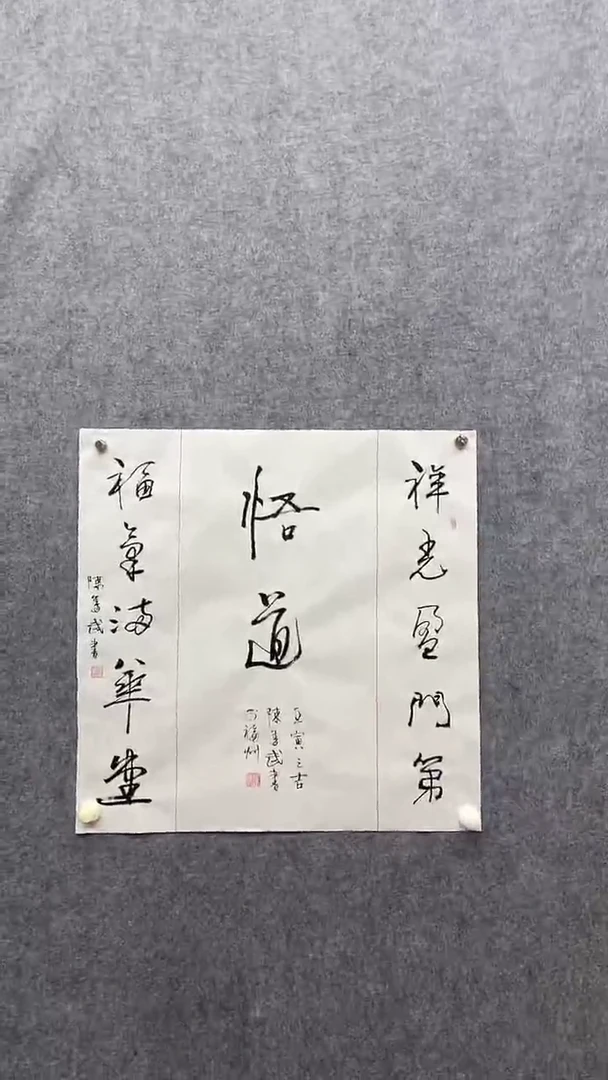 祥光盈門第
悟道
壬寅之吉
陳善武書
於福州
福氣滿華堂
陳善武書